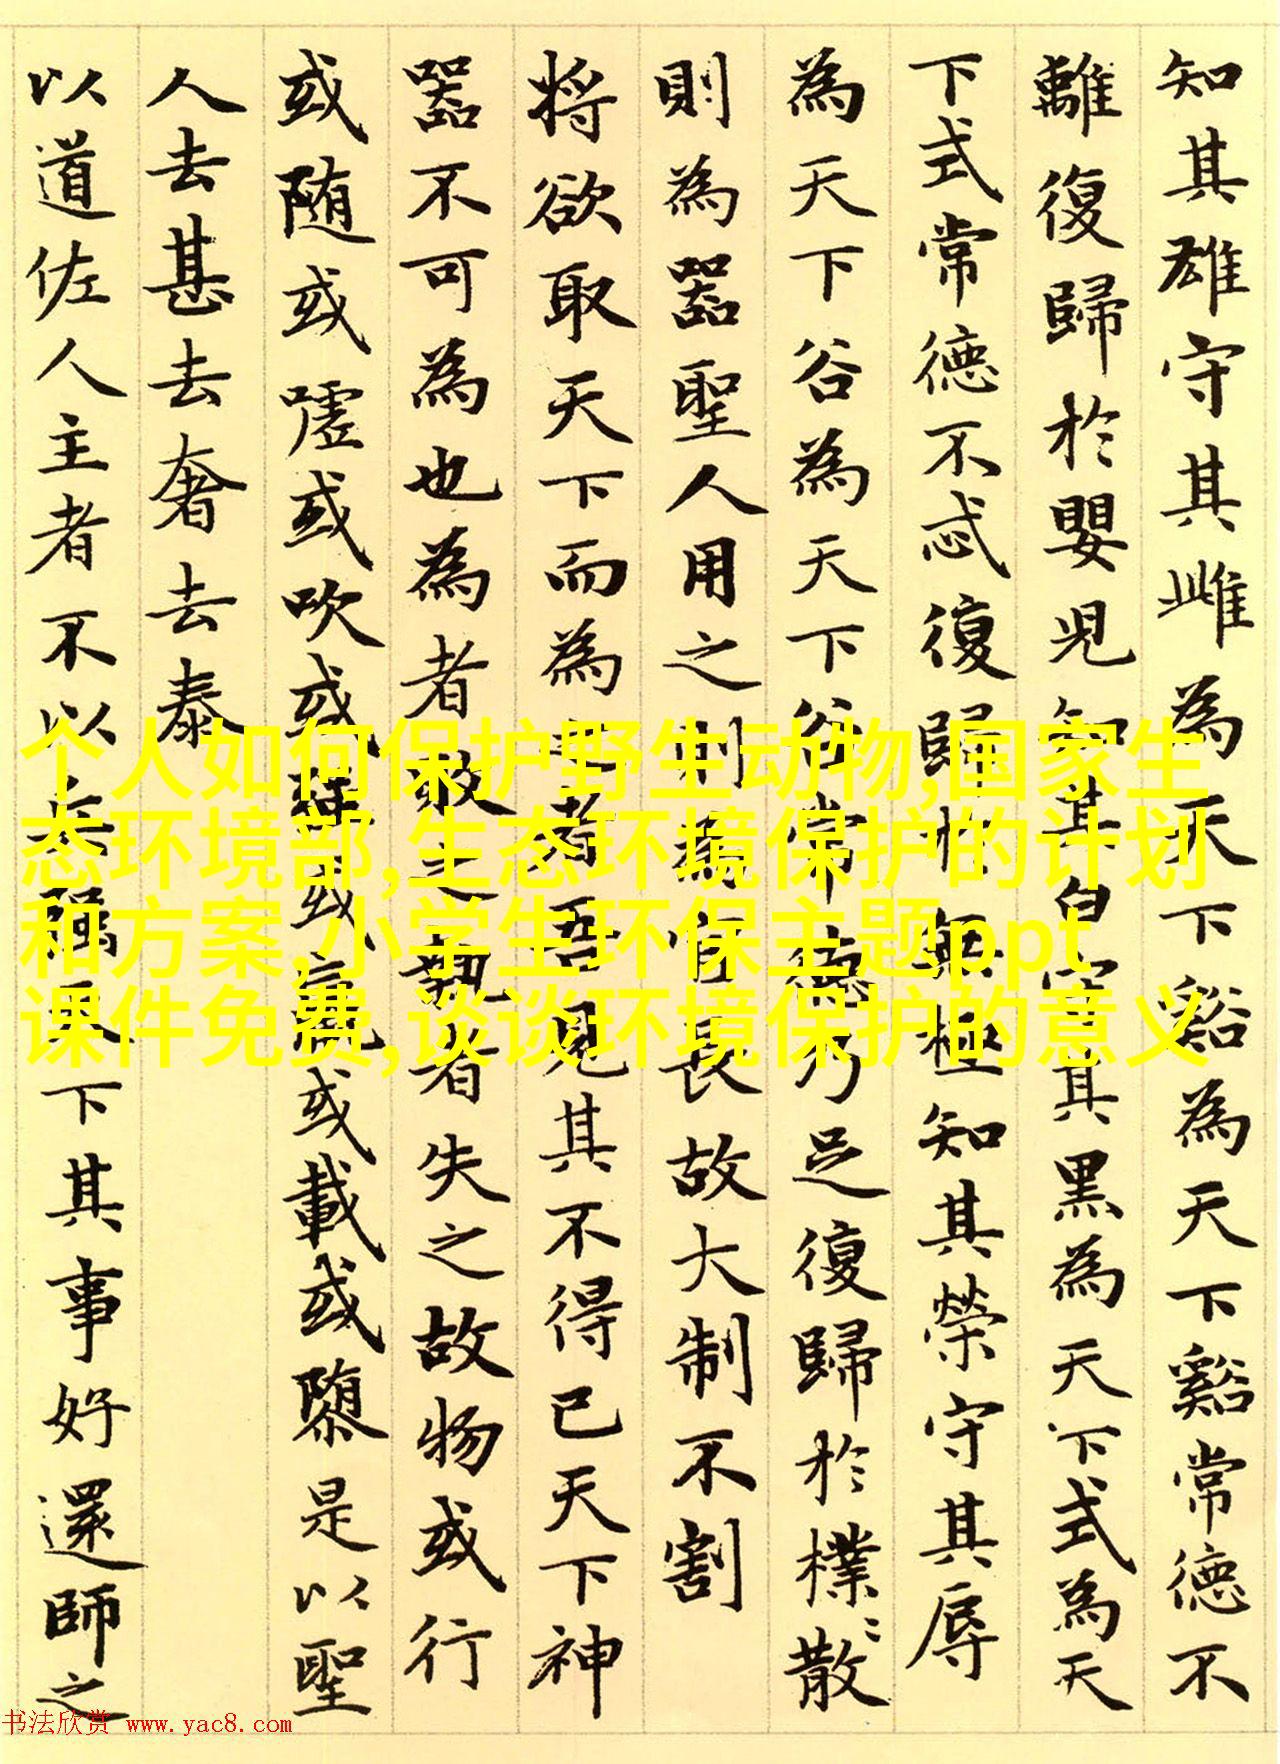 知其雄守其雌為天下谿為天下谿常德不
離復歸於嬰児知其白守其黒為天下式為天
下式常德不忒復歸於無極知其榮守其辱
為天下谷為天下谷常德乃足復歸於樸〻散
則為器聖人用之則為官長故大制不割
将欲取天下而為之者吾見其不得已天下神
器不可為也為者敗之執者失之故物或行
或随或嘘或吹或強或羸或載或隳是以聖
人去甚去奢去泰
以道佐人主者不以兵强天下其事好還師之
个人如何保护野生动物,国家生
态环境部,生态环境保护的计划
和方案,小学生环保主题ppt
课件免费,谈谈环境保护的意义
书法欣赏 www.yac8.com